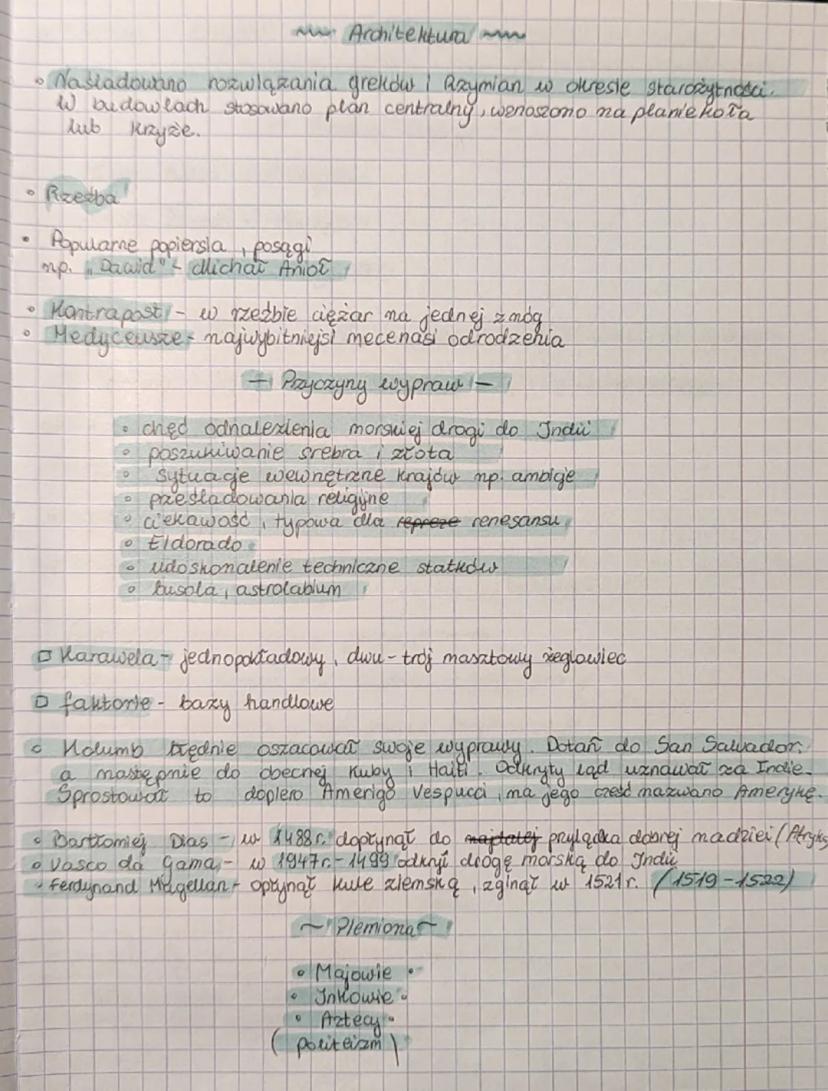 Architektura
• Naśladowano rozwiązania greków i Rzymian w okresie starożytności.
W budowlach stosowano plan centralny, wznoszono na planie koła
lub krzyże.
• Rzeźba
• Popularne popiersia, posągi
np. „Dawid" - Michał Anioł
• Kontrapost - w rzeźbie ciężar na jednej z nóg
• Medyceusze - najwybitniejsi mecenasi odrodzenia
- Przyczyny wypraw -
• chęć odnalezienia morskiej drogi do Indii
• poszukiwanie srebra i złota
• sytuacje wewnętrzne krajów np. ambicje
• prześladowania religijne
• ciekawość, typowa dla repreze renesansu
• Eldorado
• udoskonalenie techniczne statków
• busola, astrolabium
□ Karawela - jednopokładowy, dwu-trój masztowy żeglowiec
□ faktorie - bazy handlowe
• Kolumb błędnie oszacował swoje wyprawy. Dotarł do San Salvador.
a następnie do obecnej Kuby i Haiti. Odkryty ląd uznawał za Indie.
Sprostował to dopiero Amerigo Vespucci, na jego cześć nazwano Amerykę.
• Bartłomiej Dias - w 1488r. dopłynął do przylądka dobrej nadziei (Afryka
• Vasco da Gama - w 1947r. - 1499 odkrył drogę morską do Indii
• Ferdynand Magellan - opłynął kule ziemską, zginął w 1521r. (1519-1522)
~ Plemiona ~
• Majowie •
• Inkowie •
• Aztecy •
(politeizm)